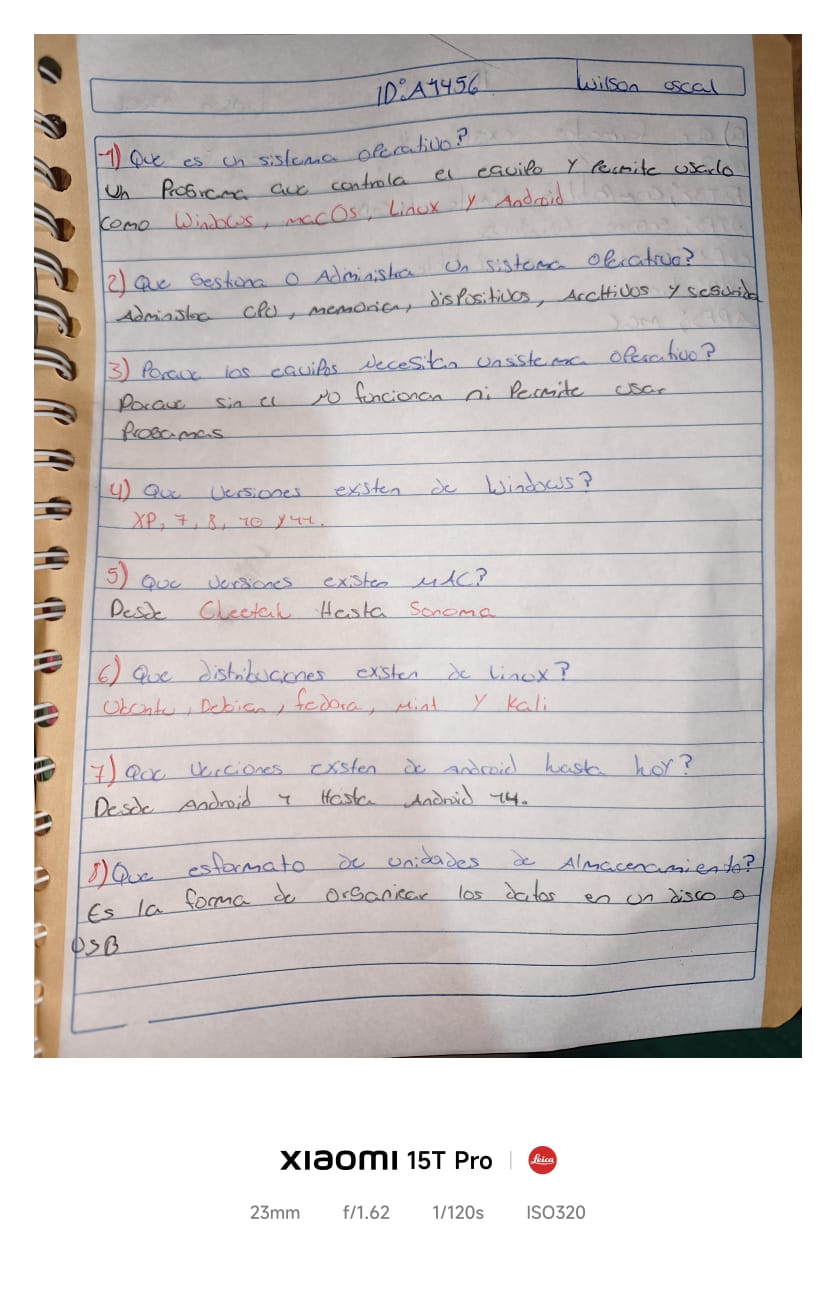 ID:A1456 Wilson oscal
1) Que es un sistema operativo?
Un Programa que controla el equipo y Permite usarlo
como Windows, macOS, Linux y Android
2) Que Gestiona o Administra Un sistema operativo?
Administra CPU, memorica, dispositivos, Archivos y segurida
3) Porque los equipos Necesitan unsistema operativo?
Porque sin el no funcionan ni Permite usar
Progamas
4) Que Versiones existen de Windows?
XP, 7, 8, 10 y 11.
5) Que Versiones existen MAC?
Desde Cheetah Hasta Sonoma
6) Que distribuciones existen de Linux?
Ubuntu, Debian, fedora, Mint y Kali
7) Que Verciones exsten de Android hasta hoy?
Desde Android 1 Hasta Android 14.
8) Que esformato de unidades de Almacenamiento?
Es la forma de organicar los datos en un disco o
USB
XIAOMI 15T Pro | Leica
23mm f/1.62 1/120s ISO320